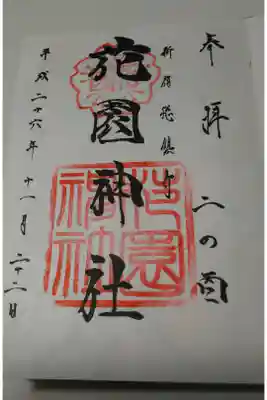 奉拝　二の酉
新宿総鎮守
花園神社
平成二十六年十一月二十二日
花園神社